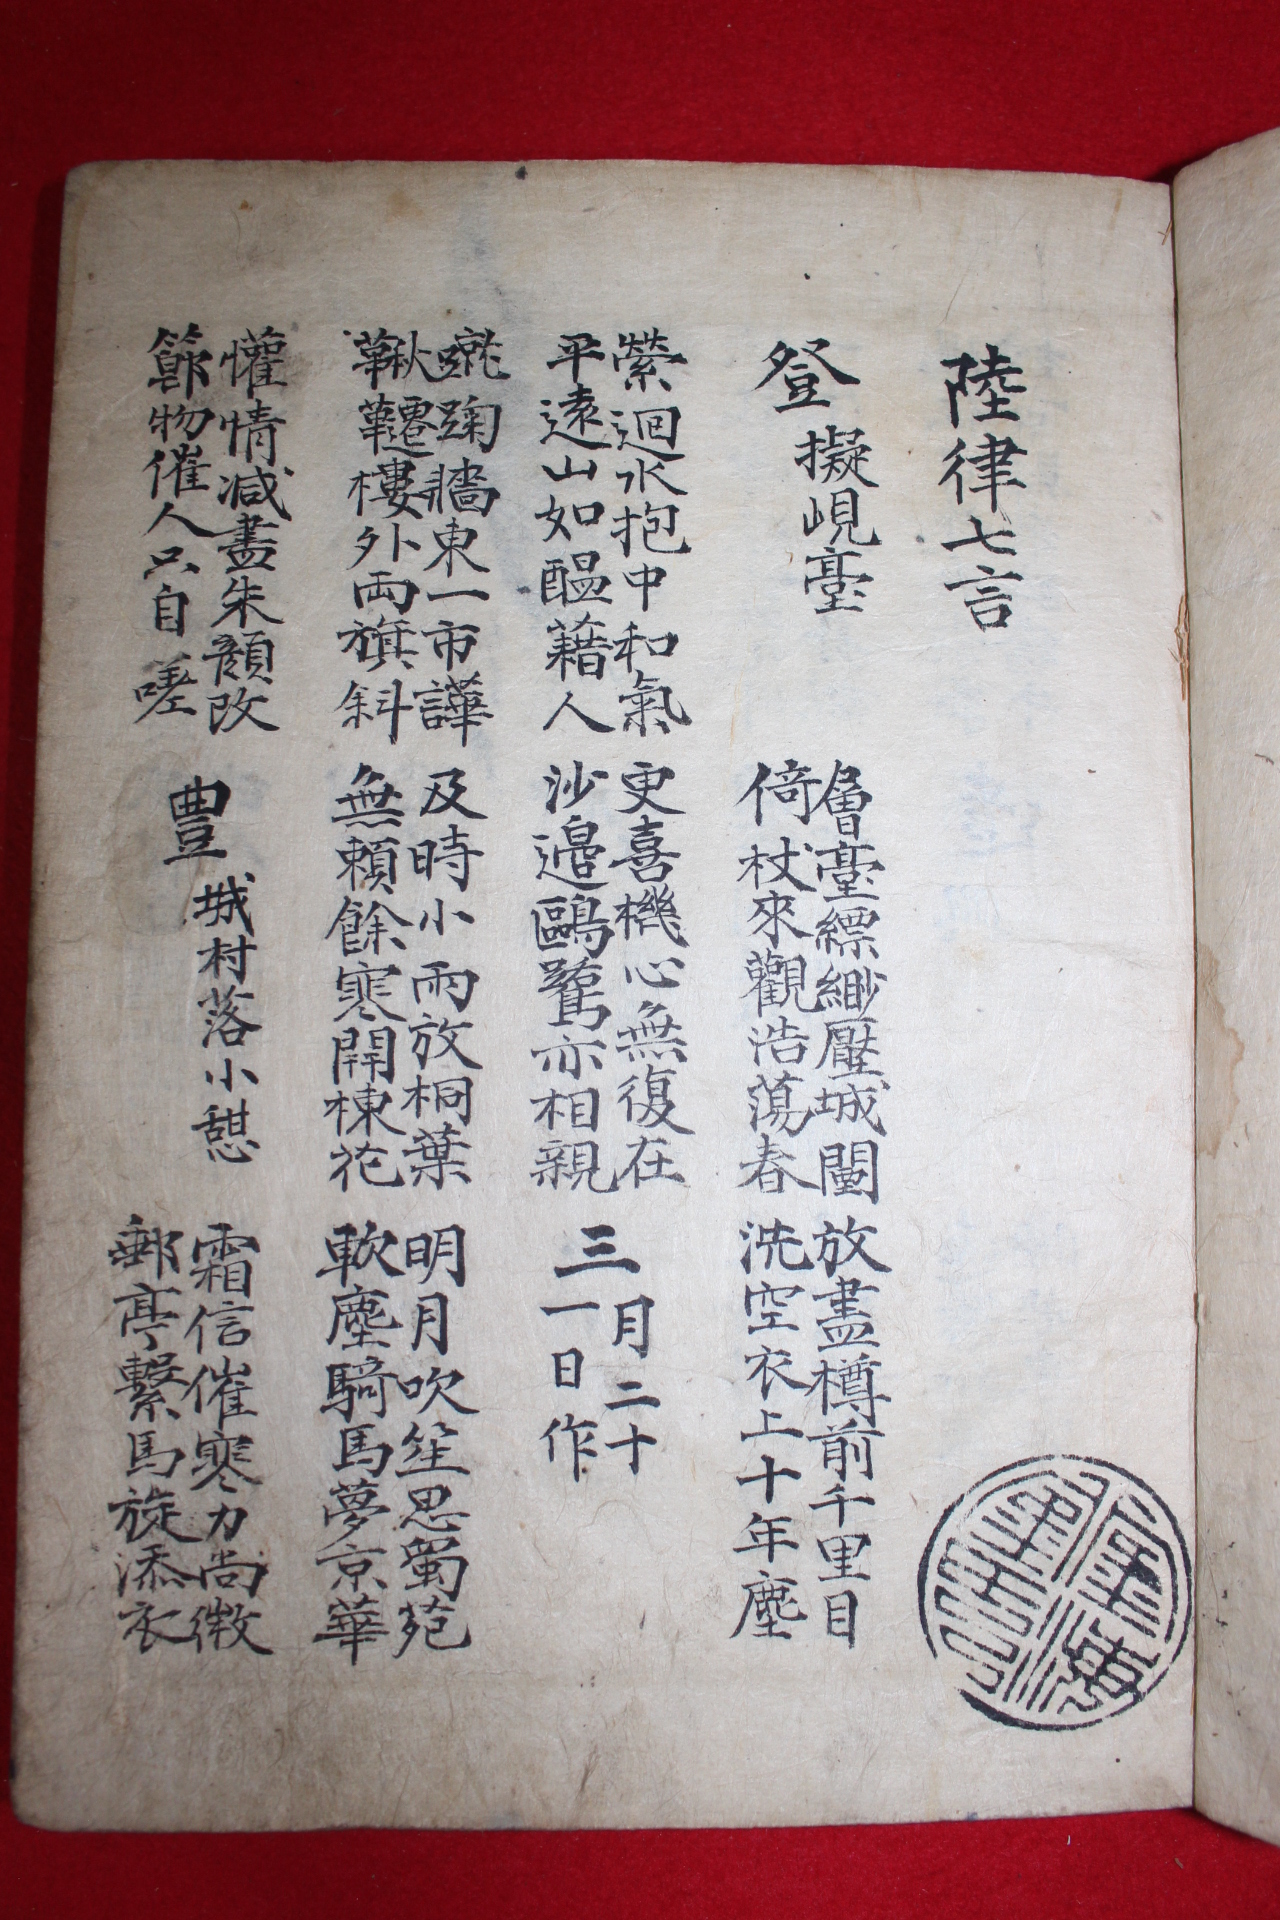 陸律七言
登擬峴臺
層臺縹緲壓城闉
倚杖來觀浩蕩春
放盡樽前千里目
洗空衣上十年塵
縈迴水抱中和氣
平遠山如醞藉人
更喜機心無復在
沙邊鷗鷺亦相親
三月二十
一日作
蹵踘牆東一市譁
鞦韆樓外兩旗斜
及時小雨放桐葉
無賴餘寒開棟花
明月吹笙思蜀苑
軟塵騎馬夢京華
懽情減盡朱顏改
節物催人只自嗟
豊城村落小憇
霜信催寒力尚微
郵亭繫馬旋添衣